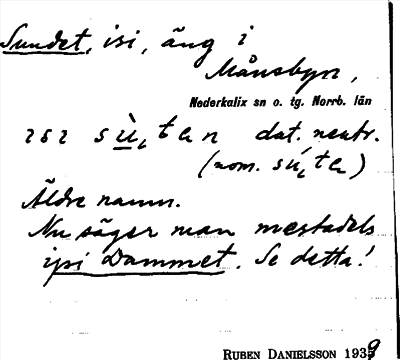 Sundet, isi, äng i
Månsbyn,
Nederkalix sn o. tg. Norrb. län
ısı sù̱ɩtɐn dat. neutr.
(nom. súɩtɐ)
Äldre namn.
Nu säger man mestadels
ipi Dammet. Se detta!
RUBEN DANIELSSON 1939